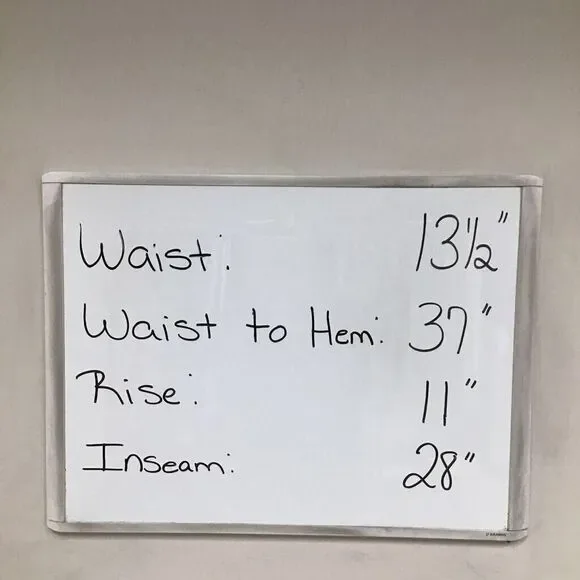 Waist: 13½"
Waist to Hem: 37"
Rise: 11"
Inseam: 28"